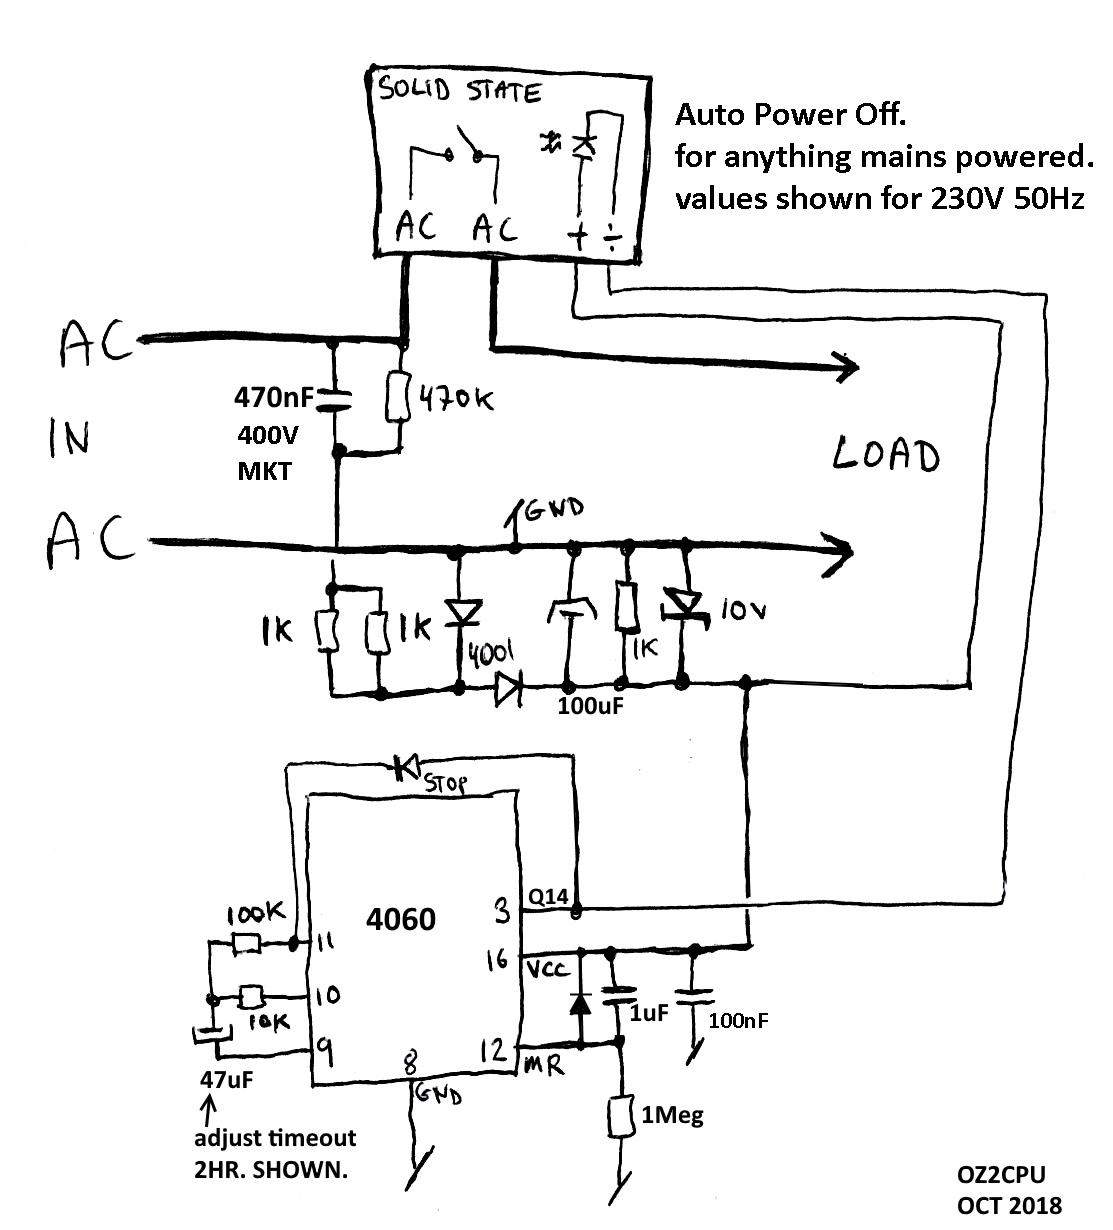 SOLID STATE
Auto Power Off.
for anything mains powered.
values shown for 230V 50Hz
AC AC + ÷
AC
470nF
400V
MKT
470K
IN
LOAD
AC
GND
1K
1K
4001
100uF
1K
10V
STOP
4060
3 Q14
100K
11
16 VCC
10
10K
1uF
100nF
9
8
12 MR
GND
47uF
1Meg
adjust timeout
2HR. SHOWN.
OZ2CPU
OCT 2018